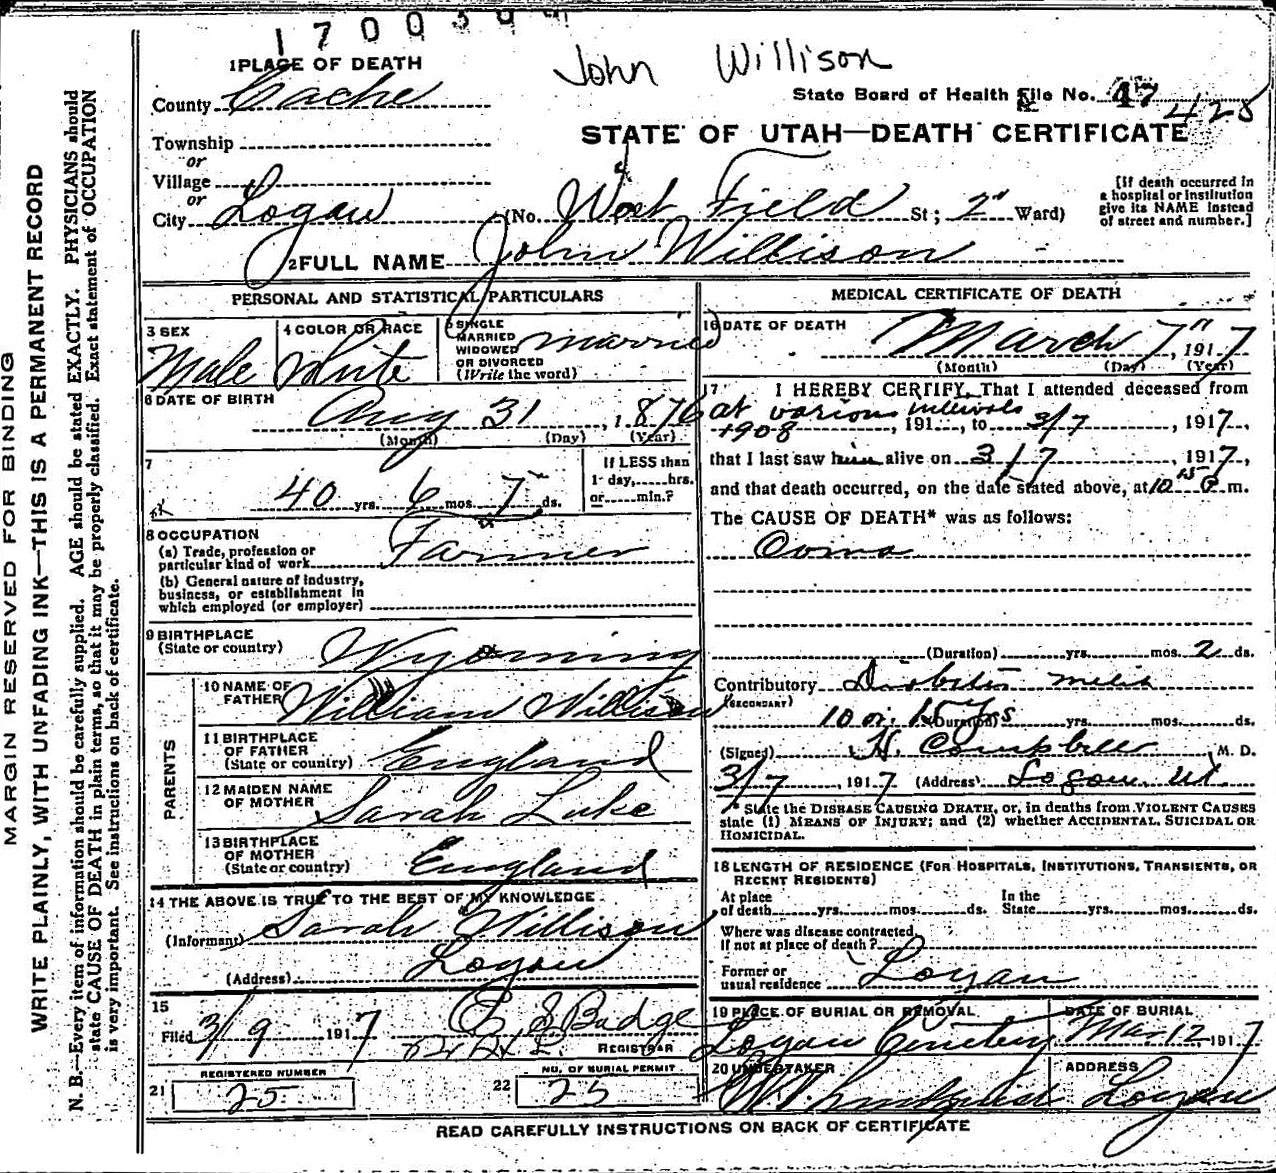 1700394
John Willison
1 PLACE OF DEATH
County Cache
State Board of Health File No. 47 428
STATE OF UTAH—DEATH CERTIFICATE
Township
or
Village
or
City Logan (No. West Field St; 2" Ward)
[If death occurred in
a hospital or institution
give its NAME instead
of street and number.]
2 FULL NAME John Willison
PERSONAL AND STATISTICAL PARTICULARS
3 SEX Male
4 COLOR OR RACE White
5 SINGLE
MARRIED
WIDOWED
OR DIVORCED
(Write the word) married
6 DATE OF BIRTH
Aug 31, 1876
(Month) (Day) (Year)
7
40 yrs. 6 mos. 7 ds.
If LESS than
1 day,.....hrs.
or.....min.?
8 OCCUPATION
(a) Trade, profession or
particular kind of work Farmer
(b) General nature of industry,
business, or establishment in
which employed (or employer)
9 BIRTHPLACE
(State or country) Wyoming
PARENTS
10 NAME OF
FATHER William Willison
11 BIRTHPLACE
OF FATHER
(State or country) England
12 MAIDEN NAME
OF MOTHER Sarah Luke
13 BIRTHPLACE
OF MOTHER
(State or country) England
14 THE ABOVE IS TRUE TO THE BEST OF MY KNOWLEDGE
(Informant) Sarah Willison
(Address) Logan
15
Filed 3/9 1917
REGISTRAR
REGISTERED NUMBER
21 25
NO. OF BURIAL PERMIT
22 25
MEDICAL CERTIFICATE OF DEATH
16 DATE OF DEATH
March 7", 1917
(Month) (Day) (Year)
17 I HEREBY CERTIFY, That I attended deceased from
at various
1908, 191..., to 3/7, 1917,
that I last saw him alive on 3/7, 1917,
and that death occurred, on the date stated above, at 10 m.
The CAUSE OF DEATH* was as follows:
Coma
(Duration) yrs. mos. 2 ds.
Contributory
(SECONDARY)
10 or 15 yrs (Duration) yrs. mos. ds.
(Signed) H. Campbell, M. D.
3/7, 1917 (Address) Logan, Ut.
* State the DISEASE CAUSING DEATH, or, in deaths from VIOLENT CAUSES
state (1) MEANS OF INJURY; and (2) whether ACCIDENTAL, SUICIDAL OR
HOMICIDAL.
18 LENGTH OF RESIDENCE (FOR HOSPITALS, INSTITUTIONS, TRANSIENTS, OR
RECENT RESIDENTS)
At place
of death yrs. mos. ds.
In the
State yrs. mos. ds.
Where was disease contracted,
If not at place of death?
Former or
usual residence Logan
19 PLACE OF BURIAL OR REMOVAL
Logan Cemetery
DATE OF BURIAL
Mar. 12 1917
20 UNDERTAKER
ADDRESS
Logan
READ CAREFULLY INSTRUCTIONS ON BACK OF CERTIFICATE
MARGIN RESERVED FOR BINDING
WRITE PLAINLY, WITH UNFADING INK—THIS IS A PERMANENT RECORD
N. B.—Every item of information should be carefully supplied. AGE should be stated EXACTLY. PHYSICIANS should
state CAUSE OF DEATH in plain terms, so that it may be properly classified. Exact statement of OCCUPATION
is very important. See instructions on back of certificate.